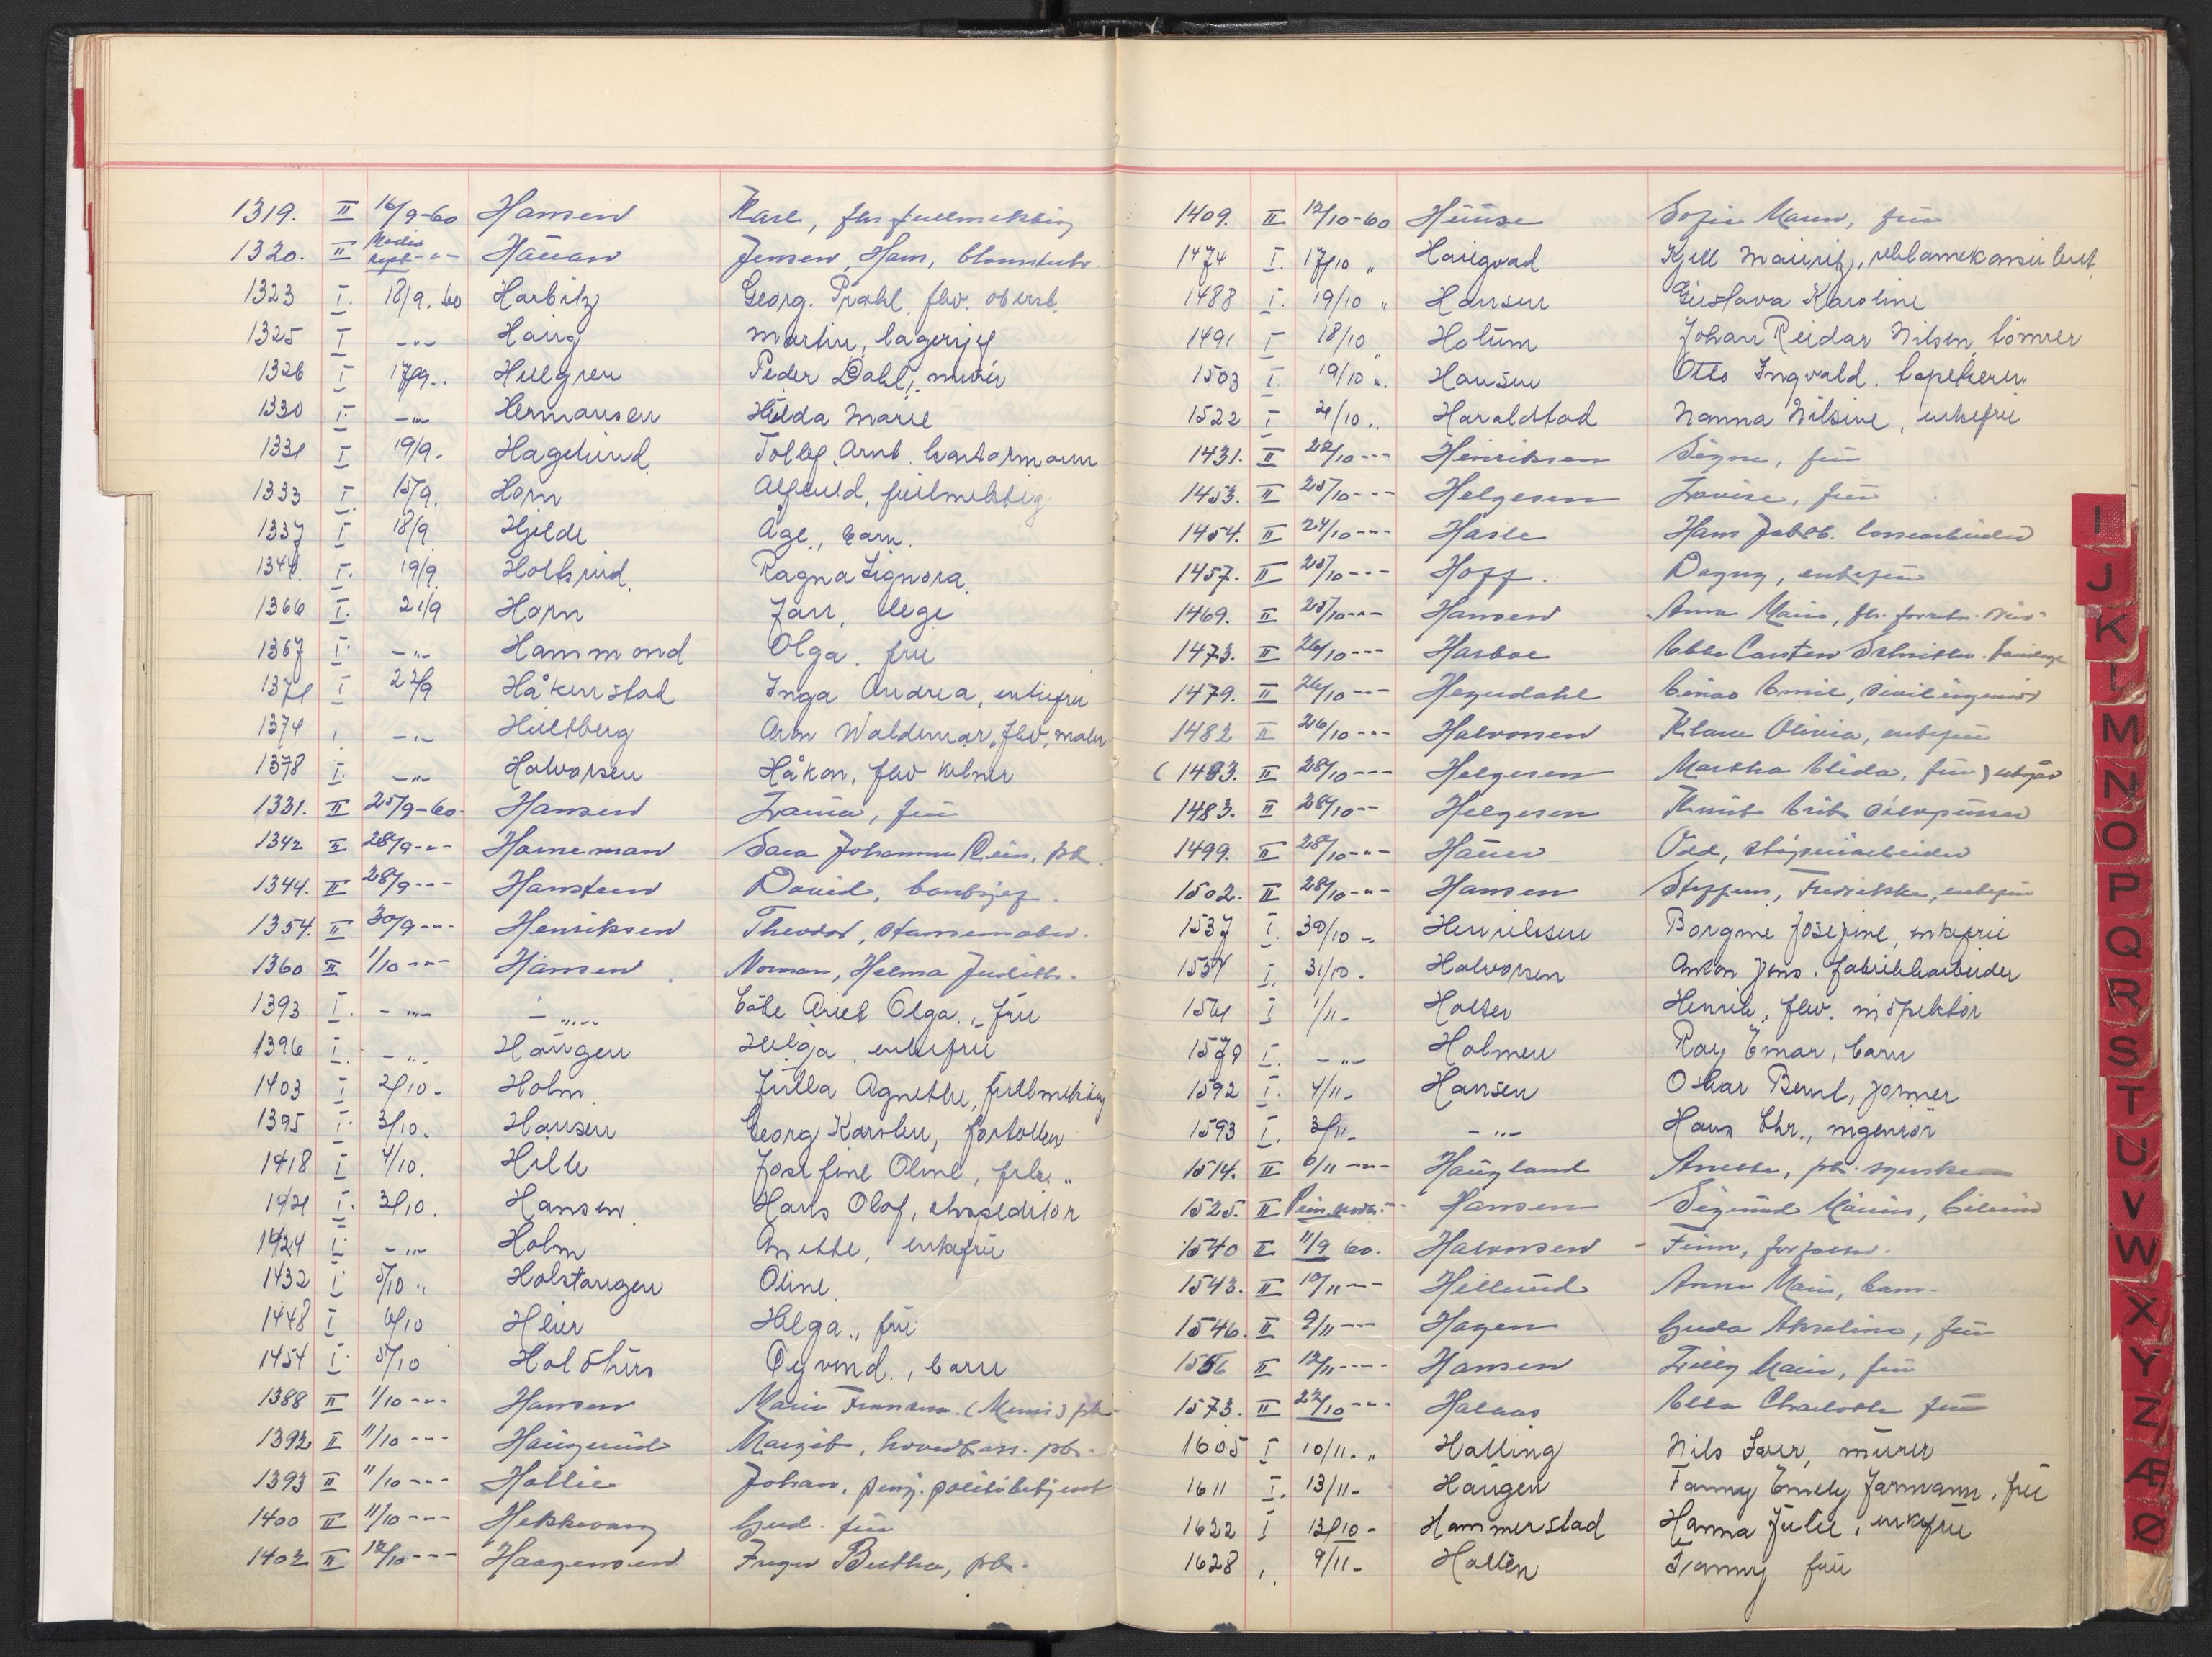 1319. II 16/9-60 Hansen Karl, fhv. fullmektig
1320. II Medio sept -"- Hauan Jensen, Hans,
1323 I. 18/9. 60 Harbitz Georg. Prahl. fhv. oberst.
1325 I -"- Haug Martin, lagersjef
1326 I 17/9.. Hulgren Peder Dahl, murer
1330 I -"- Hermansen Hulda Marie
1331 I 19/9. Hagelund Tollef. Arnt. kontormann
1333 I 15/9. Horn fullmektig
1337 I 18/9 Hjelde Åge, barn.
1344. I. 19/9 Holtsrud Ragna Signora.
1366 I. 21/9 Horn Jarr, lege
1367 I. -"- Hammond Olga. fru
1371 I 22/9 Håkenstad Inga Andrea, enkefru
1374 I -"- Hultberg Arn Waldemar, fhv. maler
1378 I. -"- Halvorsen Håkon, fhv kelner
1331. II 25/9-60. Hansen Laura, fru
1342 II 28/9-"- Horneman Sara Johanne Rein, pk.
1344. II 28/9-"- Hansteen David, banksjef.
1354. II 30/9-"- Henriksen Theodor,
1360 II 1/10-"- Hansen Norman, Helma Judith.
1393 I. -"- -"- Olga., fru
1396 I. -"- Haugen Helga, enkefru
1403 I 2/10. Holm. Julla Agnethe, fullmektig
1395 I. 3/10. Hansen Georg Karsten, fortoller
1418 I 4/10. Hille Josefine Oline, frk.
1421 I. 3/10. Hansen. Hans Olaf, ekspeditør
1424 I -"- Holm Anette, enkefru
1432 I 5/10 " Holstangen Oline.
1448 I 6/10 Heier Helga., fru
1454 I. 5/10 Holthus Øyvind., barn
1388 II 1/10-"- Hansen Marie
1392 II 11/10-"- Haugerud Margit, hovedkass. pk.
1393 II 11/10-"- Hollie Johan, pensj. politibetjent
1400 II 11/10-"- Hekkvang Gud. fru
1402 II 12/10-"- Haagensen Inger Berthe, pk.
1409. II 12/10-60 Huuse Sofie Maren, fru
1474 I. 17/10 " Haugvad Kjell Mauritz, reklamekonsulent
1488 I. 19/10 " Hansen Gustava Karoline
1491 I 18/10 " Holum Johan Reidar Nilsen, tømrer
1503 I. 19/10 ". Hansen Otto Ingvald. tapetserer.
1522 I 21/10.. Haraldstad Nanna Nilsine, enkefru
1431. II 22/10-"- Henriksen Signe, fru
1453. II 25/10-"- Helgesen Louise, fru
1454. II 24/10-"- Hasle Hans Jakob. lossearbeider
1457. II 25/10-"- Hoff. Dagny, enkefru
1469. II 25/10-"- Hansen Anna Marie, fhv.
1473. II 26/10-"- Harboe Ebbe Carsten
1479. II 26/10-"- Hegerdahl Einar Emil, sivilingeniør
1482 II 26/10-"- Halvorsen Klara Olivia, enkefru
(1483. II 28/10-"- Helgesen Martha Elida, fru) utgår
1483. II 28/10-"- Helgesen Knut Erik sølvpusser
1499. II 28/10-"- Hauer Odd,
1502. II 28/10-"- Hansen Steffens, Fredrikke, enkefru
1537 I. 30/10 " Henriksen Borgine Josefine, enkefru
1534 I. 31/10. Halvorsen Anton Jens. fabrikkarbeider
1561 I 1/11- Holter Henrik, fhv. inspektør
1579 I. -"- Holmen Roy Emar, barn
1592 I. 4/11- Hansen Oskar Bernt, former
1593 I. 3/11- -"- Hans Chr., ingeniør
1514. II 6/11-"- Haugland Anette, pk. syerske
1525. II Prim. novbr. -"- Hansen Sigurd Marius,
1540 II 11/9 60. Halvorsen Finn, forfatter.
1543. II 10/11-"- Hellerud Anne Marie, barn.
1546. II 9/11-"- Hagen Guda Akseline, fru
1556 II 12/11-"- Hansen Lilly Marie, fru
1573. II 22/10-"- Halaas Ella Charlotte fru
1605 I 10/11. " Halling Nils Iver, murer
1611 I. 13/11- Haugen Fanny Emely Jarmann, fru
1622 I 13/10- Hammerstad Hanna Julie, enkefru
1628 , 9/11- Hallèn Fanny fru
I
J
K
L
M
N
O
P
Q
R
S
T
U
V
W
X
Y
Z
Æ
Ø